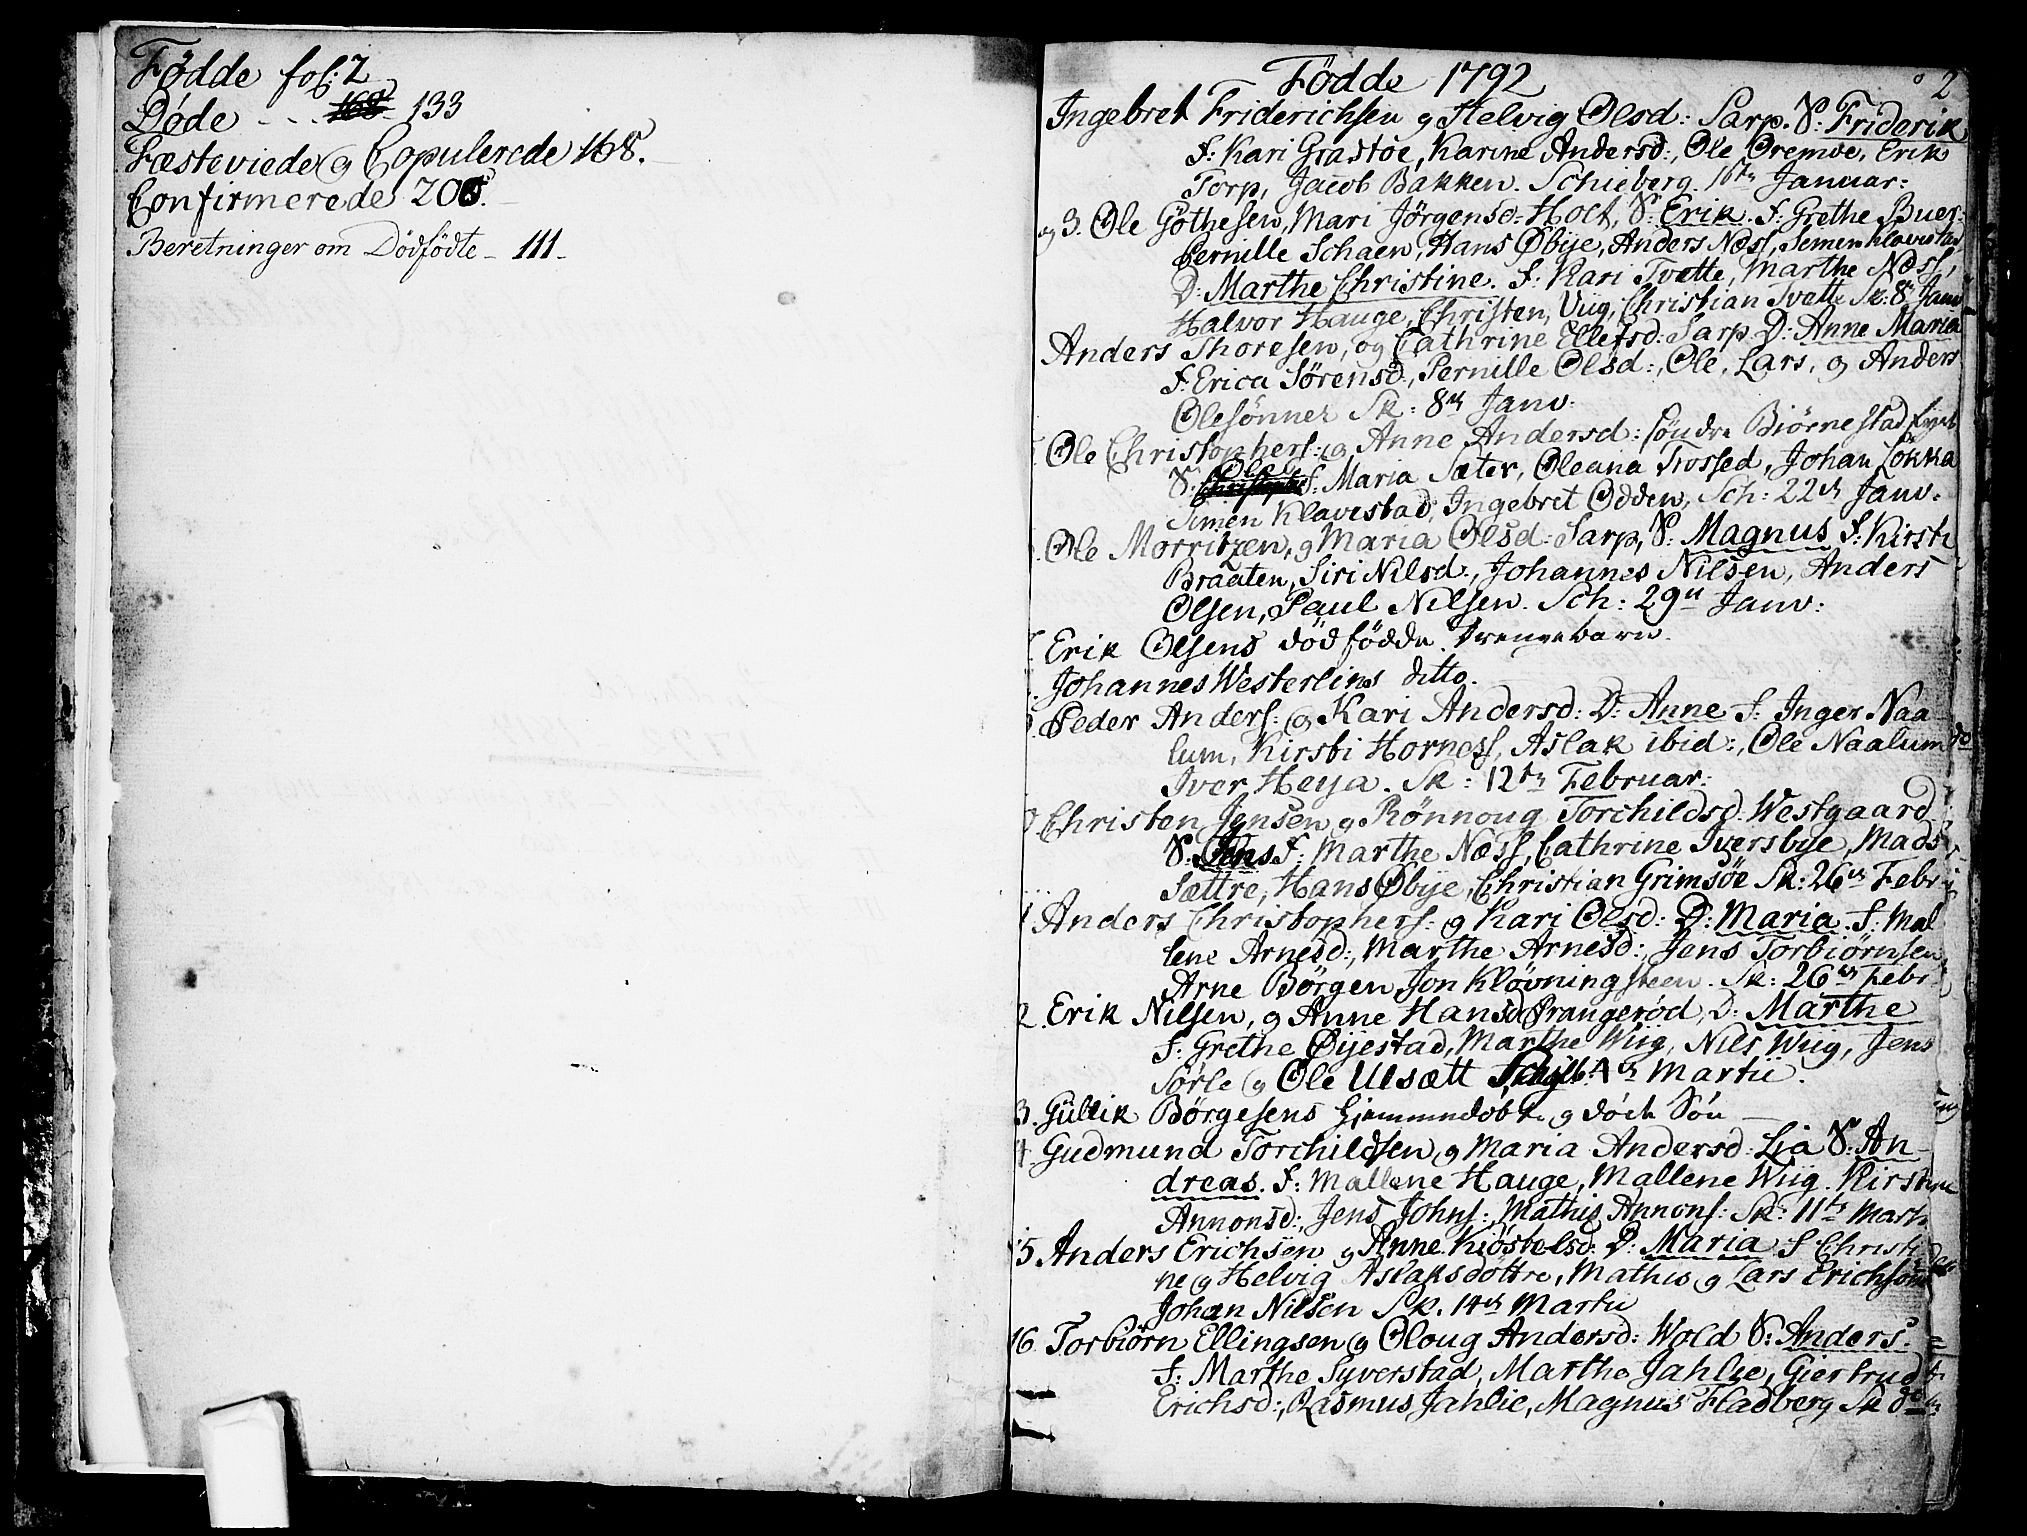 Födde fol: 2
Döde - - - 168 133
Fæsteviede og Copulerede 168.
Confirmerede 206.
Beretninger om Dödfödte - 111 -
Födde 1792
2
Ingebret Friderichsen og Helvig Olsd: Sarp. S: Friderik
F: Kari Grastöe, Karine Andersd:, Ole Oremoe, Erik
Torp, Jacob Bakken. Schieberg. 16tn Januar:
og 3. Ole Göthesen, Mari Jörgensd: Holt, S: Erik. F: Grethe Buer
Pernille Schaen, Hans Öbye, Anders Næss, Semen Klavestad
D: Marthe Christine. F: Kari Tvette, Marthe Næss,
Halvor Hauge, Christen Viig, Christian Tvette Sk: 8 Janv
Anders Thoresen, og Cathrine Ellefsd: Sarp D: Anne Maria
F: Erica Sörensd:, Pernille Olsd:, Ole, Lars, og Anders
Olesönner Sk: 8tn Janv:
Ole Christophers: og Anne Andersd: söndre Biörnestad
S: Ole F: Maria Sæter, Oleana Trossed, Johan Lökka
Simen Klavestad, Ingebret Odden, Sch: 22tn Janv.
Ole Morritzen, og Maria Olsd: Sarp, S: Magnus F: Kirsti
Braaten, Siri Nilsd:, Johannes Nilsen, Anders
Olsen, Paul Nilsen. Sch: 29n Janv:
Erik Olsens dödfödde Drengebarn.
Johannes Westerlins ditto.
Peder Anders: og Kari Andersd: D: Anne F: Inger Naa-
lum, Kirsti Horness, Aslak ibid:, Ole Naalum
Iver Heya. Sk: 12tn Februar:
Christen Jensen og Rönnoug Torchildsd. Westgaard
S: Jens F: Marthe Næss, Cathrine Iversbye, Mads
Sættre, Hans Öbye, Christian Grimsöe Sk: 26tn Febr
1 Anders Christophers: og Kari Olsd: D: Maria. F: Mal
lene Arnesd:, Marthe Arnesd:, Jens Torbiörnsen
Arne Börgen, Jon Klövningsteen. Sk: 26tn Febr
2. Erik Nilsen, og Anne Hansd Prangeröd, D: Marthe
F: Grethe Öyestad, Marthe Wiig, Nils Wiig, Jens
Sörle og Ole Ulsætt Martii.
3. Gullik Börgesens hjemmedöbte og döde Sön
4 Gudmund Torchildsen og Maria Andersd: Lia S: An-
dreas. F: Mallene Hauge, Mallene Wiig. Kirstine
Annonsd:, Jens Johns:, Mathis Annons: Sk: 11tn Marti
15 Anders Erichsen og Anne Kiöstelsd: D: Maria F Christi
ne og Helvig Aslaksdottre, Mathis og Lars Erichsönner
Johan Nilsen Sk. 14tn Martii
16 Torbiörn Ellingsen og Oloug Andersd: Wold S: Anders.
F: Marthe Syverstad, Marthe Jahlie, Giertrud
Erichsd:, Rasmus Jahlie, Magnus Hadberg Sk do